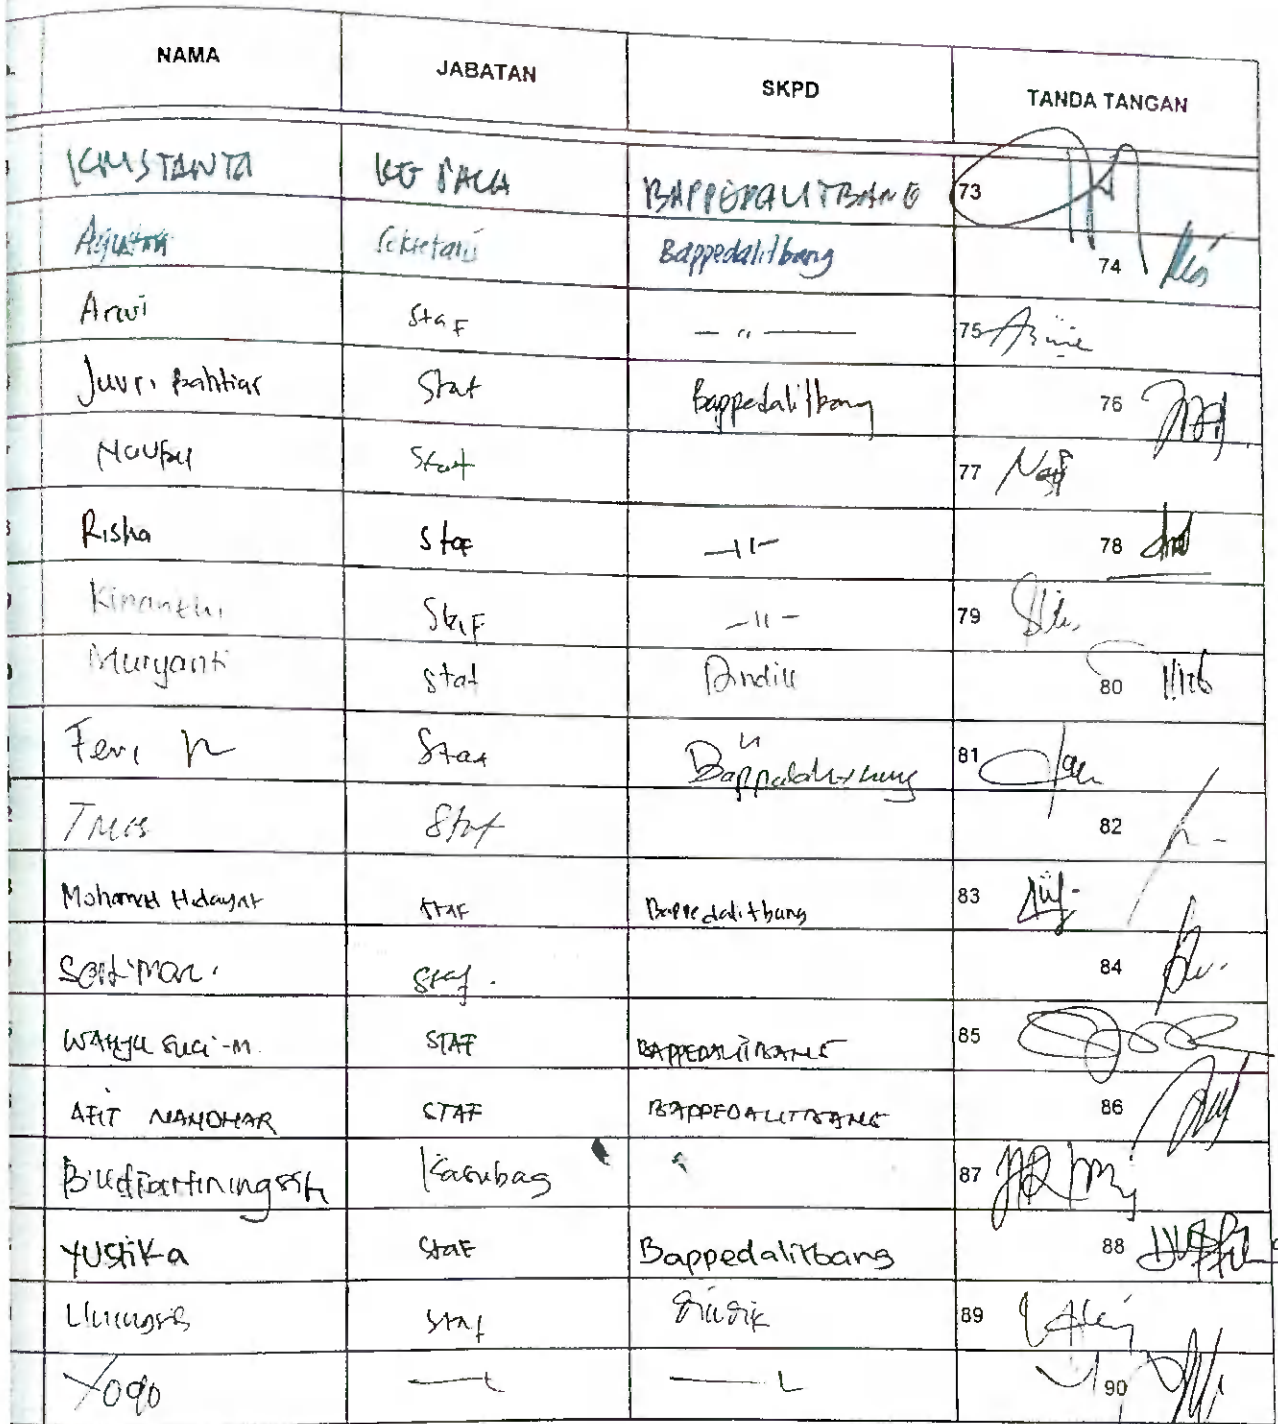 NAMA JABATAN SKPD TANDA TANGAN
KRISTANTA KE PALA BAPPEDALITBANG 73
Agustin Sekretaris Bappedalitbang 74
Arwi Staf — " — 75
Juvri Bahtiar Staf Bappedalitbang 76
Naufal Staf 77
Risha Staf —11— 78
Kinanthi Staf —11— 79
Muryanti Staf Dindik 80
Feri Staf Bappedalitbang 81
Staf 82
Mohamad Hidayat STAF Bappedalitbang 83
Staf. 84
WAHYU Suci-M. STAF BAPPEDALITBANG 85
AFIT NANDHAR STAF BAPPEDALITBANG 86
Budiartiningsih Kasubag 87
YUSTIKA Staf Bappedalitbang 88
Staf 89
Yogo 90